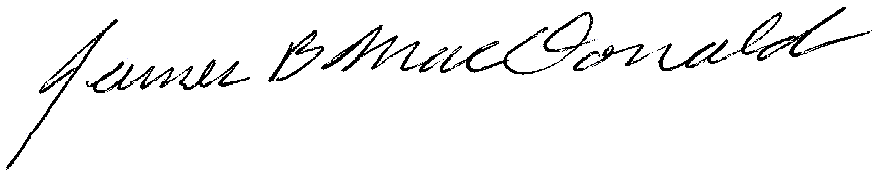 James B MacDonald